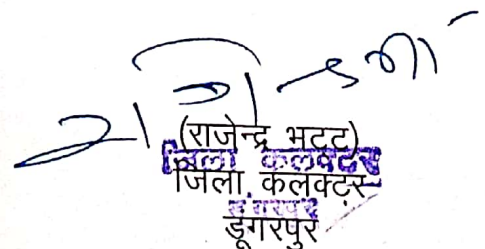 (राजेन्द्र भट्ट)
जिला कलक्टर
जिला कलक्टर
डूंगरपुर
डूंगरपुर